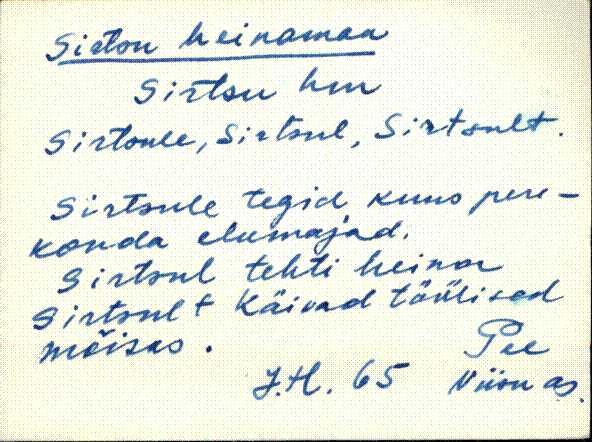 Sirtsu heinamaa
Sirtsu hm
Sirtsule, Sirtsul, Sirtsult.
Sirtsule tegid kuus pere-
konda elumajad.
Sirtsul tehti heina
Sirtsult Käivad töölised
mõisas.
Pee
J.H. 65 Niisu as.